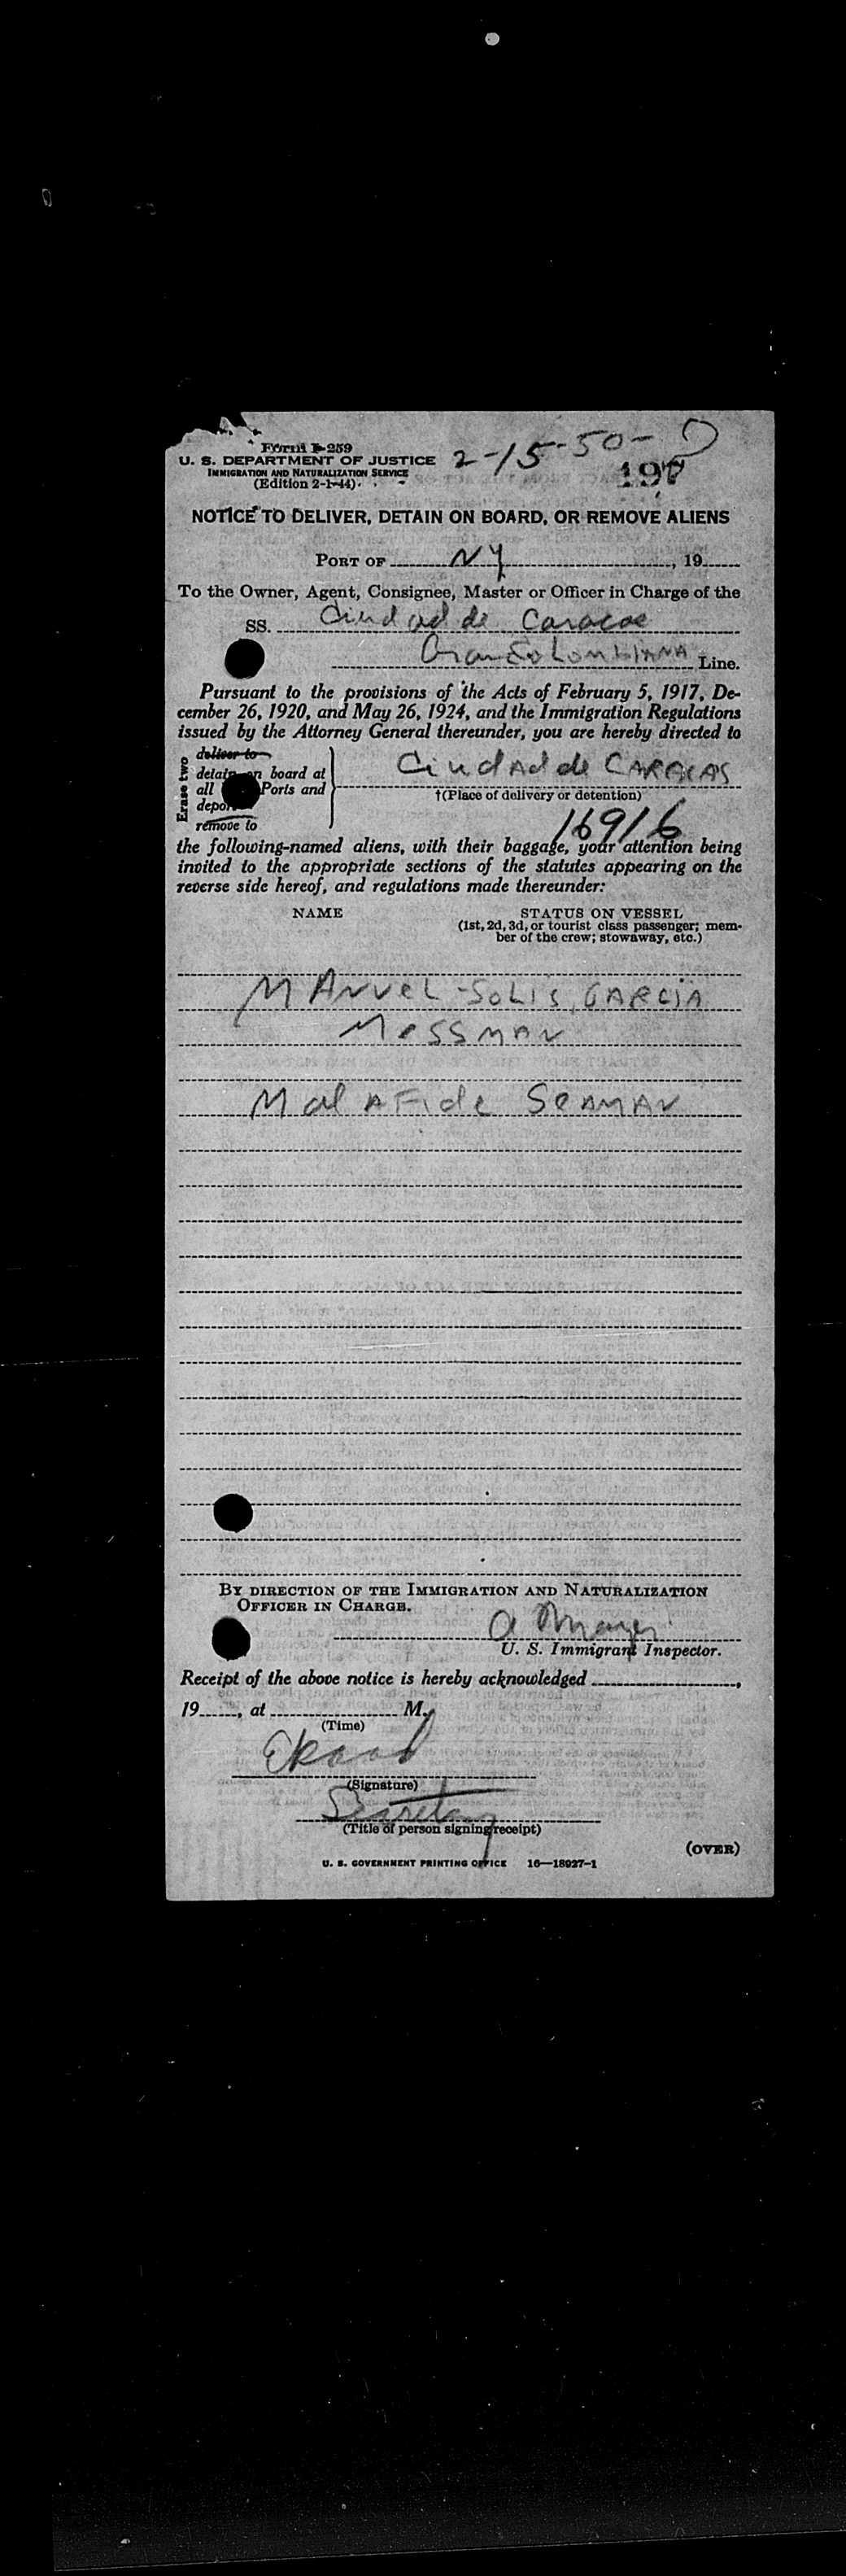 Form I-259
U. S. DEPARTMENT OF JUSTICE
IMMIGRATION AND NATURALIZATION SERVICE
(Edition 2-1-44)
2-15-50-
NOTICE TO DELIVER, DETAIN ON BOARD, OR REMOVE ALIENS
PORT OF NY, 19
To the Owner, Agent, Consignee, Master or Officer in Charge of the
SS. Ciudad de Caracas
GranColombiana Line.
Pursuant to the provisions of the Acts of February 5, 1917, De-
cember 26, 1920, and May 26, 1924, and the Immigration Regulations
issued by the Attorney General thereunder, you are hereby directed to
Erase two
deliver to
detain on board at
all Ports and
deport
remove to
Ciudad de CARACAS
†(Place of delivery or detention)
16916
the following-named aliens, with their baggage, your attention being
invited to the appropriate sections of the statutes appearing on the
reverse side hereof, and regulations made thereunder:
NAME
STATUS ON VESSEL
(1st, 2d, 3d, or tourist class passenger; mem-
ber of the crew; stowaway, etc.)
MANUEL-SOLIS, GARCIA
MESSMAN
Mal AFide SEAMAN
BY DIRECTION OF THE IMMIGRATION AND NATURALIZATION
OFFICER IN CHARGE.
U. S. Immigrant Inspector.
Receipt of the above notice is hereby acknowledged ,
19 , at M.
(Time)
(Signature)
Secretary
(Title of person signing receipt)
(OVER)
U. S. GOVERNMENT PRINTING OFFICE 16—18927-1